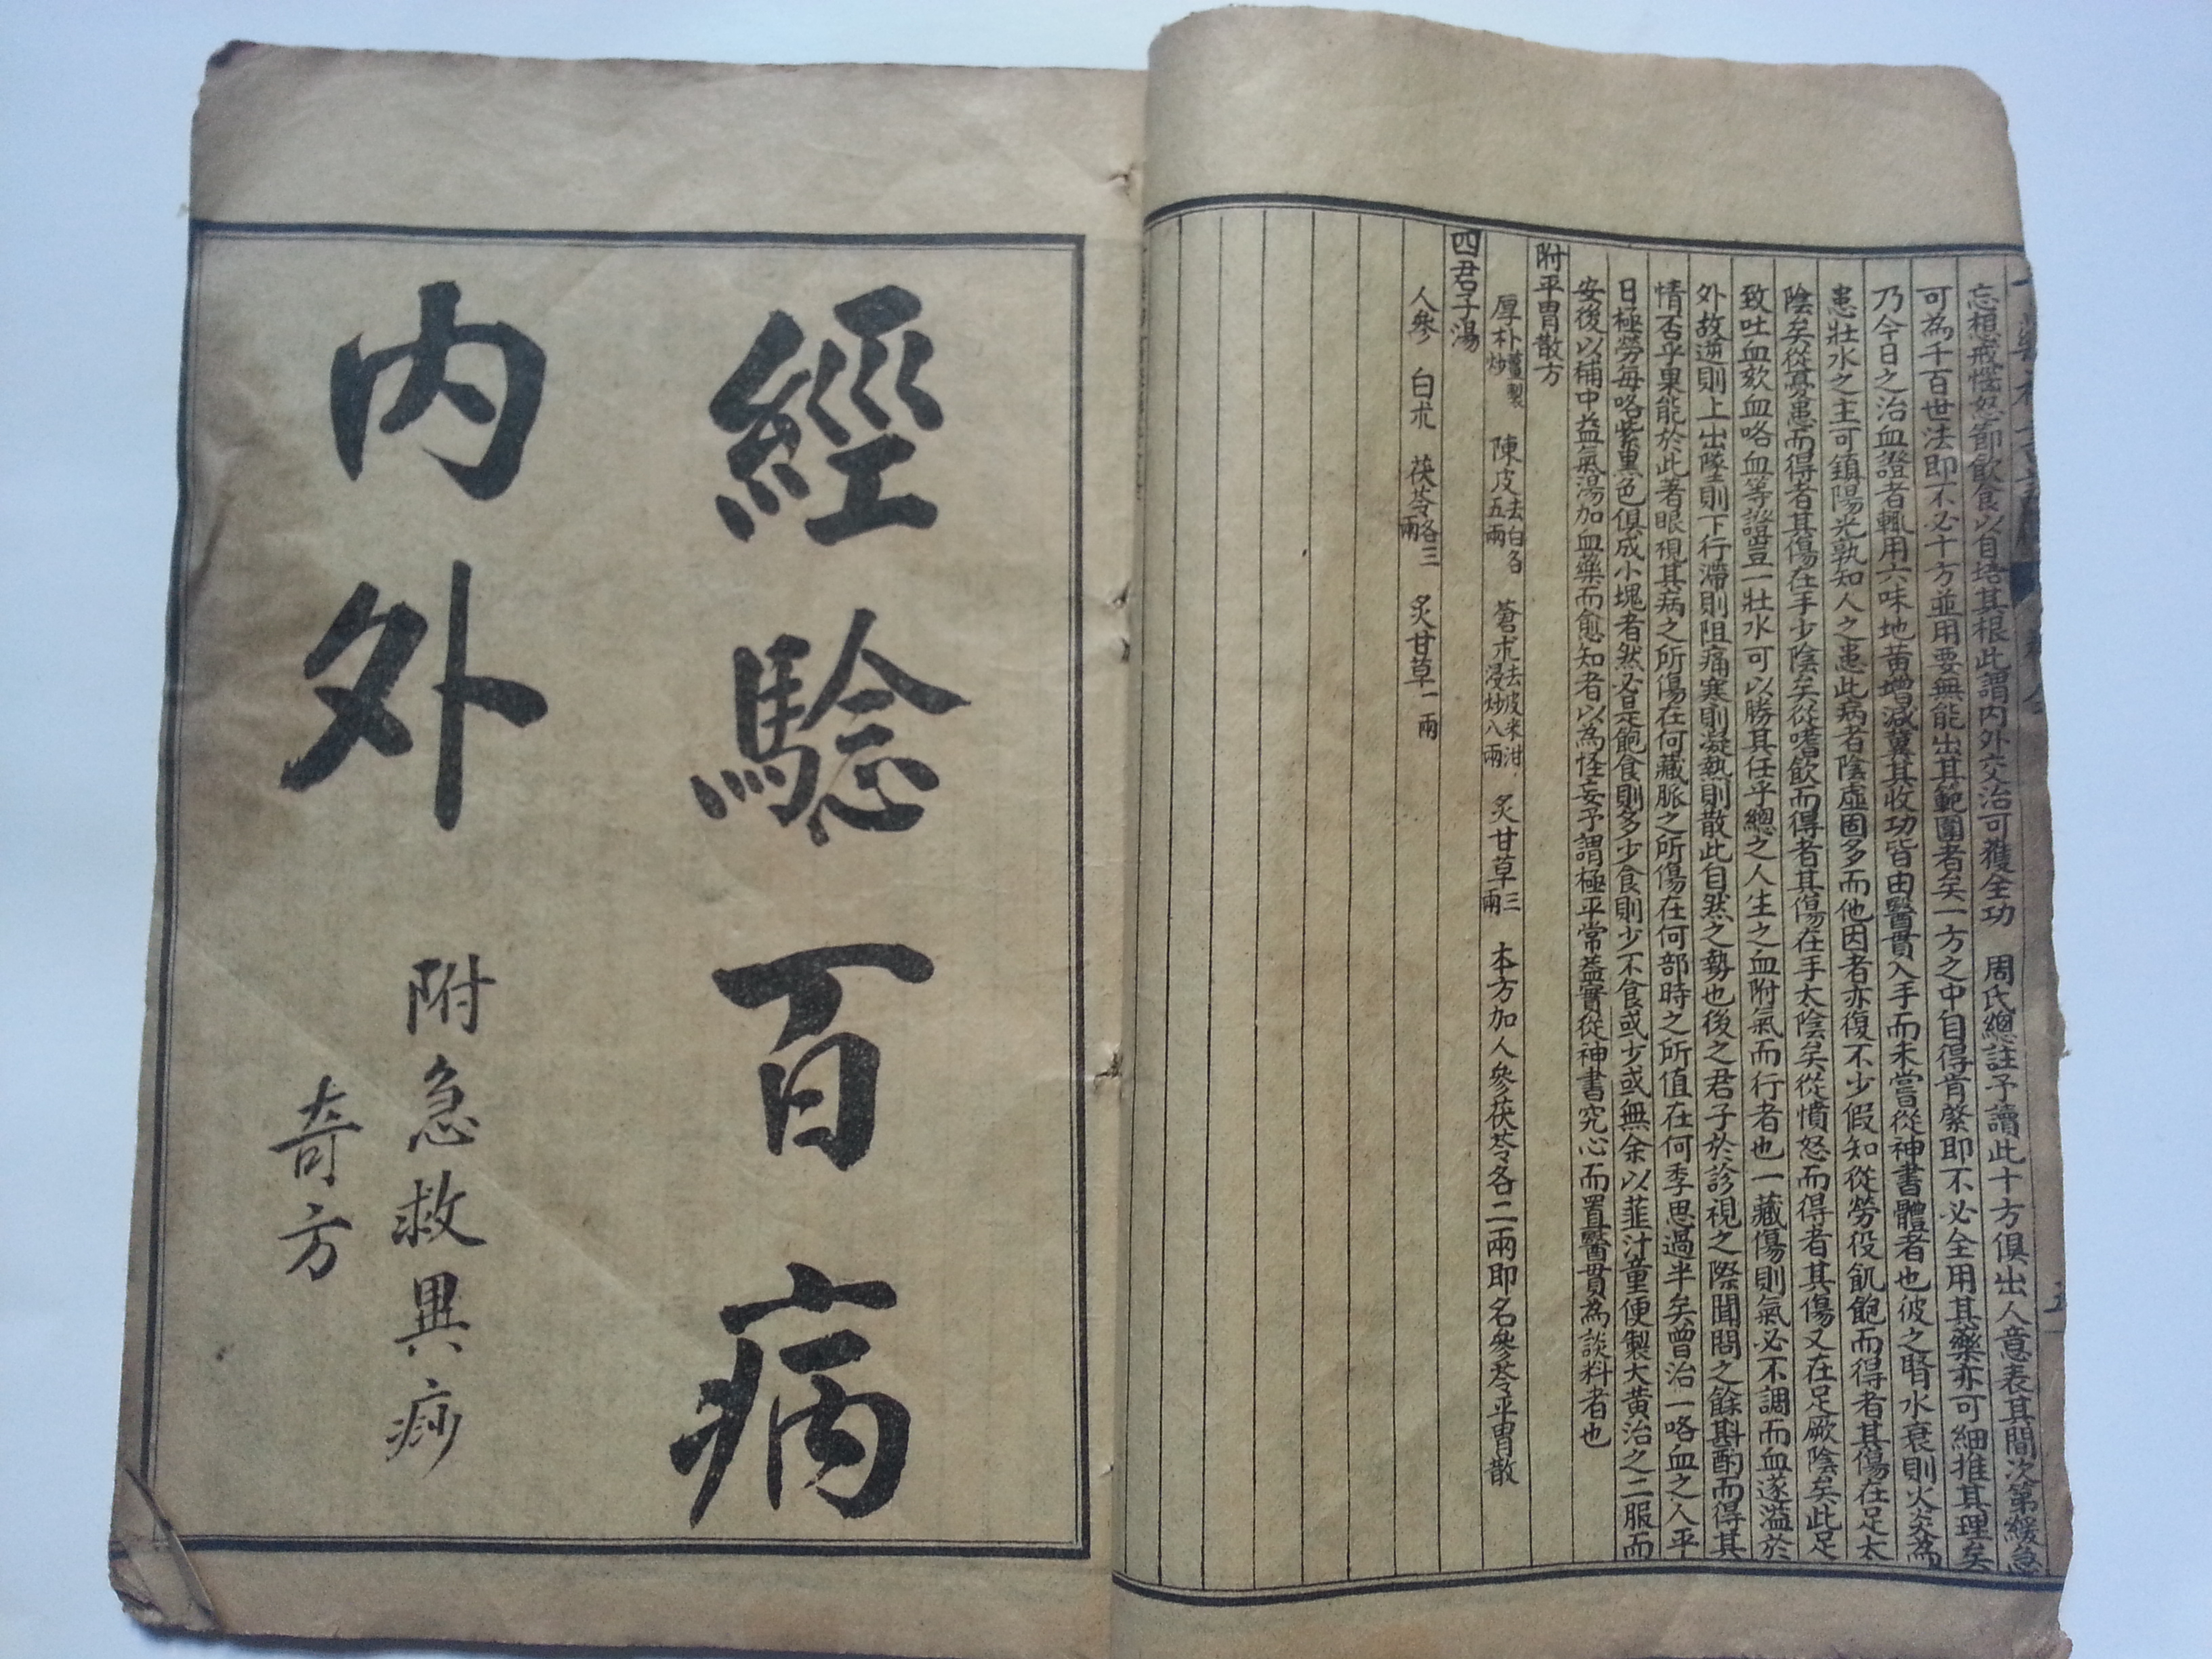 忘想戒惱怒節飲食以自培其根此謂內外交治可獲全功　周氏總註予讀此十方俱出人意表其間次第緩急
可為千百世法即不必十方並用要無能出其範圍者矣一方之中自得肯綮即不必全用其藥亦可細推其理矣
乃今日之治血證者輒用六味地黃增減冀其收功皆由醫貫入手而未嘗從神書體者也彼之腎水衰則火炎為
患壯水之主可鎮陽光孰知人之患此病者陰虛固多而他因者亦復不少假知從勞役飢飽而得者其傷在足太
陰矣從憂患而得者其傷在手少陰矣從嗜飲而得者其傷在手太陰矣從憤怒而得者其傷又在足厥陰矣此足
致吐血欬血咯血等證豈一壯水可以勝其任乎總之人生之血附氣而行者也一藏傷則氣必不調而血遂溢於
外故逆則上出墜則下行滯則阻痛寒則凝熱則散此自然之勢也後之君子於診視之際聞問之餘斟酌而得其
情否乎果能於此著眼視其病之所傷在何藏脈之所傷在何部時之所值在何季思過半矣曾治一咯血之人平
日極勞每咯紫黑色俱成小塊者然必是飽食則多少食則少不食或少或無余以韭汁童便製大黃治之二服而
安後以補中益氣湯加血藥而愈知者以為怪妄予謂極平常蓋實從神書究心而置醫貫為談料者也
附平胃散方
厚朴薑製炒　陳皮去白各五兩　蒼朮去皮米泔浸炒八兩　炙甘草三兩　本方加人參茯苓各二兩即名參苓平胃散
四君子湯
人參　白朮　茯苓各三兩　炙甘草一兩
經驗百病
內外
附急救異痧
奇方